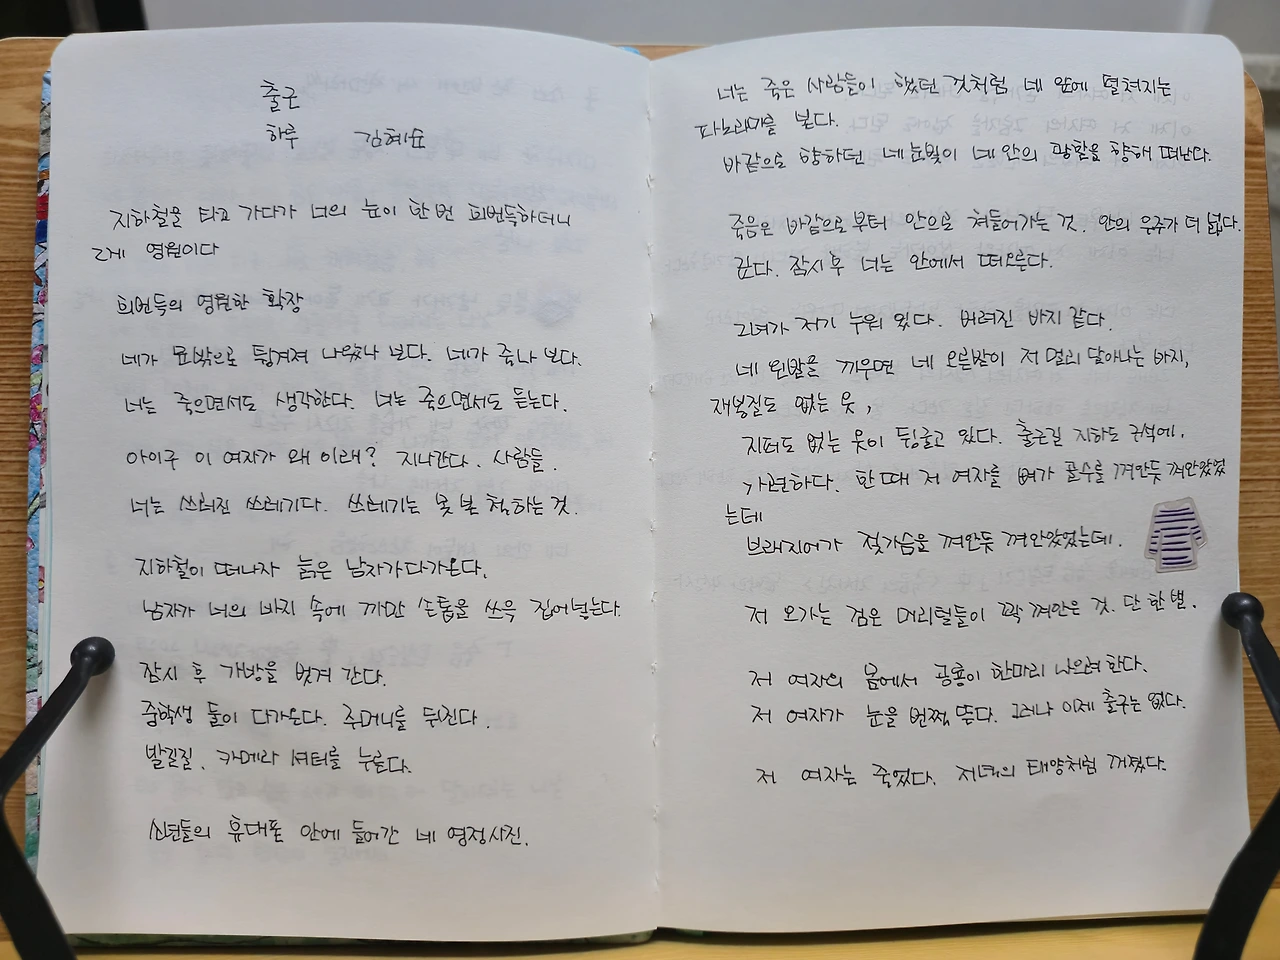 출근
하루 김혜순
지하철을 타고 가다가 너의 눈이 한 번 희번득하더니
그게 영원이다
희번득의 영원한 확장
네가 문밖으로 튕겨져 나왔나 보다. 네가 죽나 보다.
너는 죽으면서도 생각한다. 너는 죽으면서도 듣는다.
아이구 이 여자가 왜 이래? 지나간다. 사람들.
너는 쓰러진 쓰레기다. 쓰레기는 못 본 척하는 것.
지하철이 떠나자 늙은 남자가 다가온다.
남자가 너의 바지 속에 까만 손톱을 쓰윽 집어넣는다.
잠시 후 가방을 벗겨 간다.
중학생 둘이 다가온다. 주머니를 뒤진다.
발길질. 카메라 셔터를 누른다.
소년들의 휴대폰 안에 들어간 네 영정사진.
너는 죽은 사람들이 했던 것처럼 네 앞에 펼쳐지는
파노라마를 본다.
바깥으로 향하던 네 눈빛이 네 안의 광활을 향해 떠난다.
죽음은 바깥으로부터 안으로 쳐들어가는 것. 안의 우주가 더 넓다.
깊다. 잠시 후 너는 안에서 떠오른다.
그녀가 저기 누워 있다. 버려진 바지 같다.
네 왼발을 끼우면 네 오른발이 저 멀리 달아나는 바지,
재봉질도 없는 옷,
지퍼도 없는 옷이 뒹굴고 있다. 출근길 지하도 구석에.
가련하다. 한 때 저 여자를 뼈가 골수를 껴안듯 껴안았었
는데
브래지어가 젖가슴을 껴안듯 껴안았었는데.
저 오가는 검은 머리털들이 꽉 껴안은 것. 단 한 벌.
저 여자의 몸에서 공룡이 한마리 나오려 한다.
저 여자가 눈을 번쩍 뜬다. 그러나 이제 출구는 없다.
저 여자는 죽었다. 저녁의 태양처럼 꺼졌다.